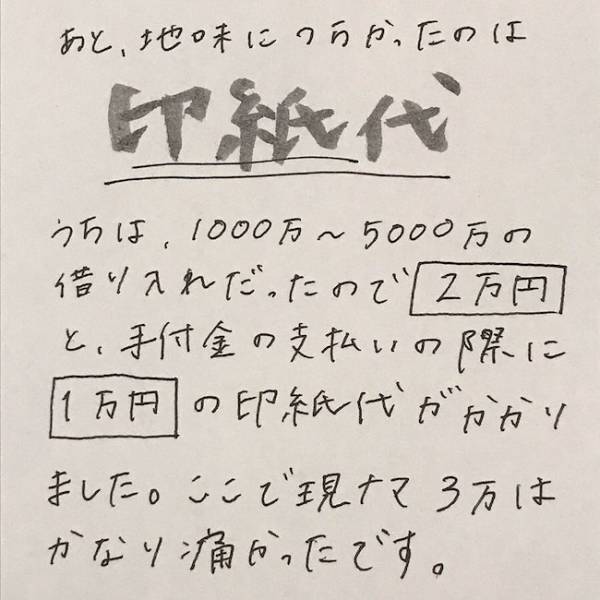 あと、地味につらかったのは
印紙代
うちは、1000万〜5000万の
借り入れだったので 2万円
と、手付金の支払いの際に
1万円 の印紙代がかかり
ました。ここで現ナマ3万は
かなり痛かったです。